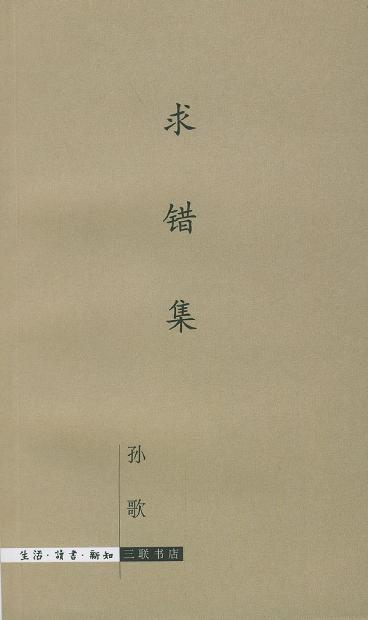 求错集
孙歌
生活·讀書·新知 三联书店